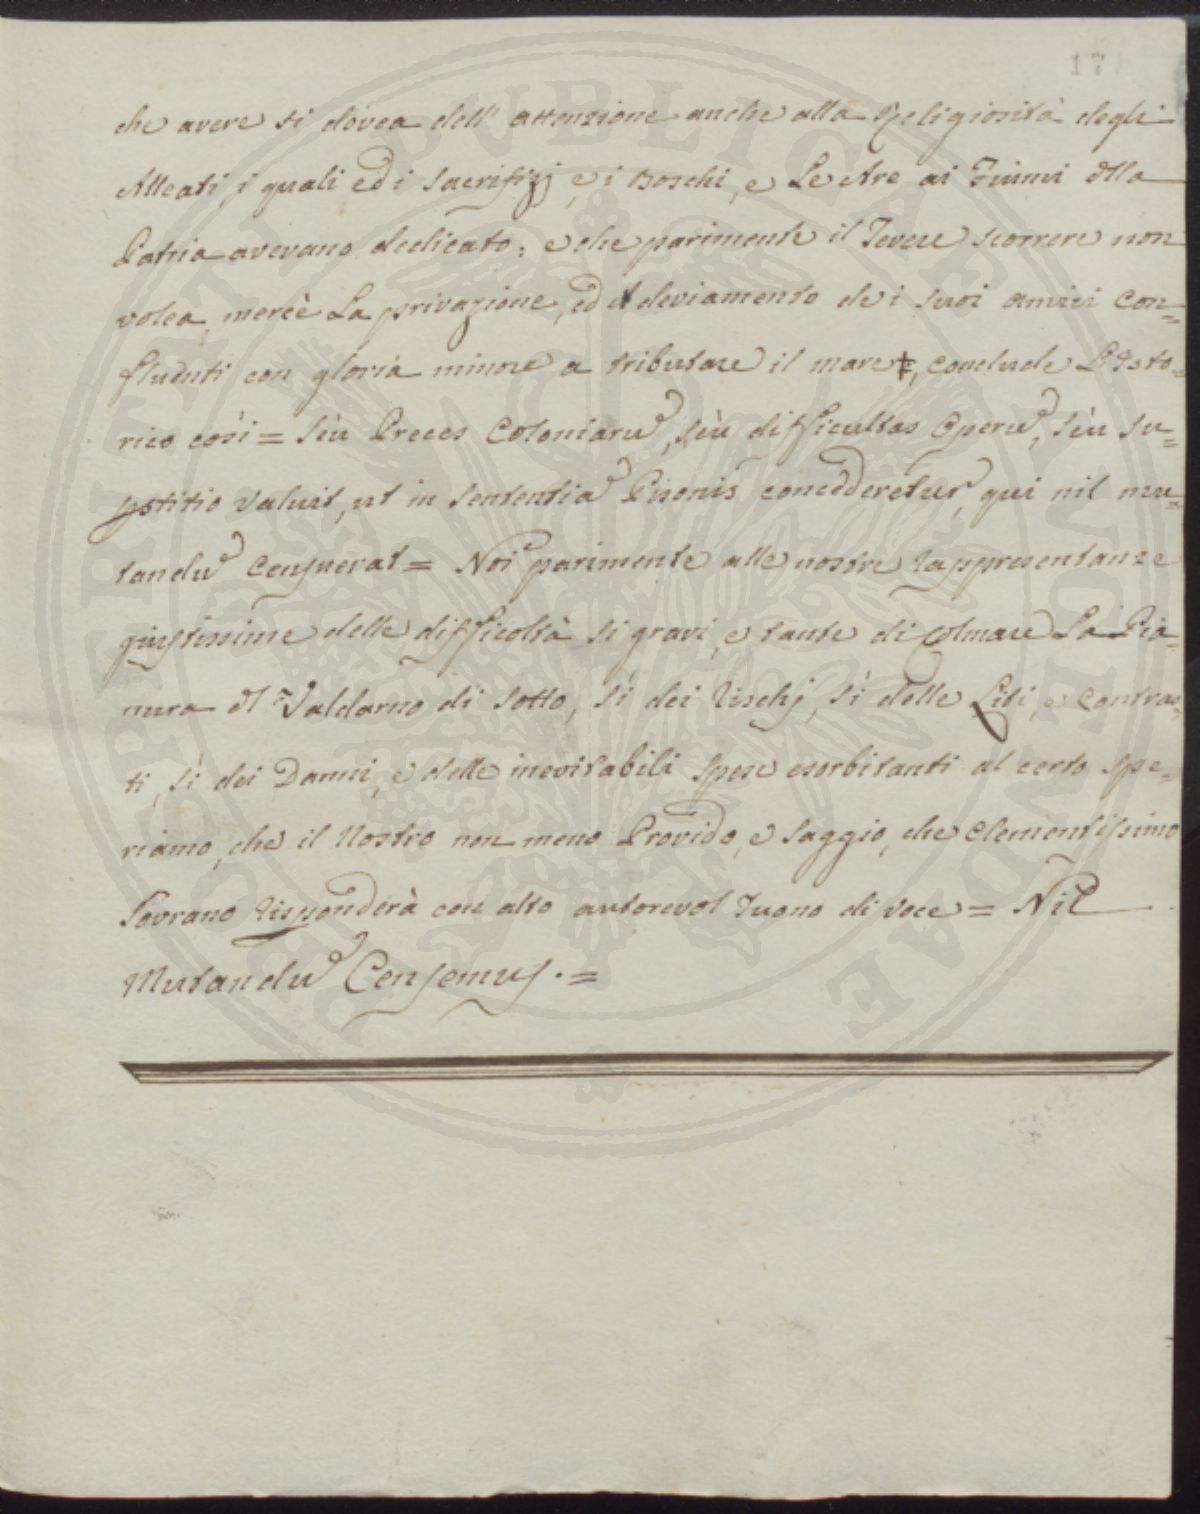 17
che avere si dovea dell' attenzione anche alla Religiosità degli
Alleati, i quali ed i sacrifizj, e i Boschi, e Le Are ai Fiumi dlla
Patria avevano dedicato: e che parimente il Tevere scorrere non
volea, mercè La privazione, ed il deviamento dei suoi amici con=
fluenti con gloria minore a tributare il mare, conclude L'Isto=
rico così = seù Preces Coloniarũ, seù difficultas Operũ, seù su=
pstitio valuit, ut in sententiã Pisonis concederetur, qui nil mu=
tandũ Censuerat = Noi parimente alle nostre rappresentanze
giustissime delle difficoltà si gravi, e tante di colmare La Pia=
nura dl Valdarno di sotto, sì dei rischj, sì delle Liti, e Contras=
ti, sì dei Danni, e delle inevitabili spese esorbitanti al certo spe=
riamo, che il Nostro non meno Provido, e saggio, che clementissimo
Sovrano risponderà con alto autorevol Tuono di voce = Nil
Mutandũ Censemus. =
PERIIT PUBLICAE UTILITATI